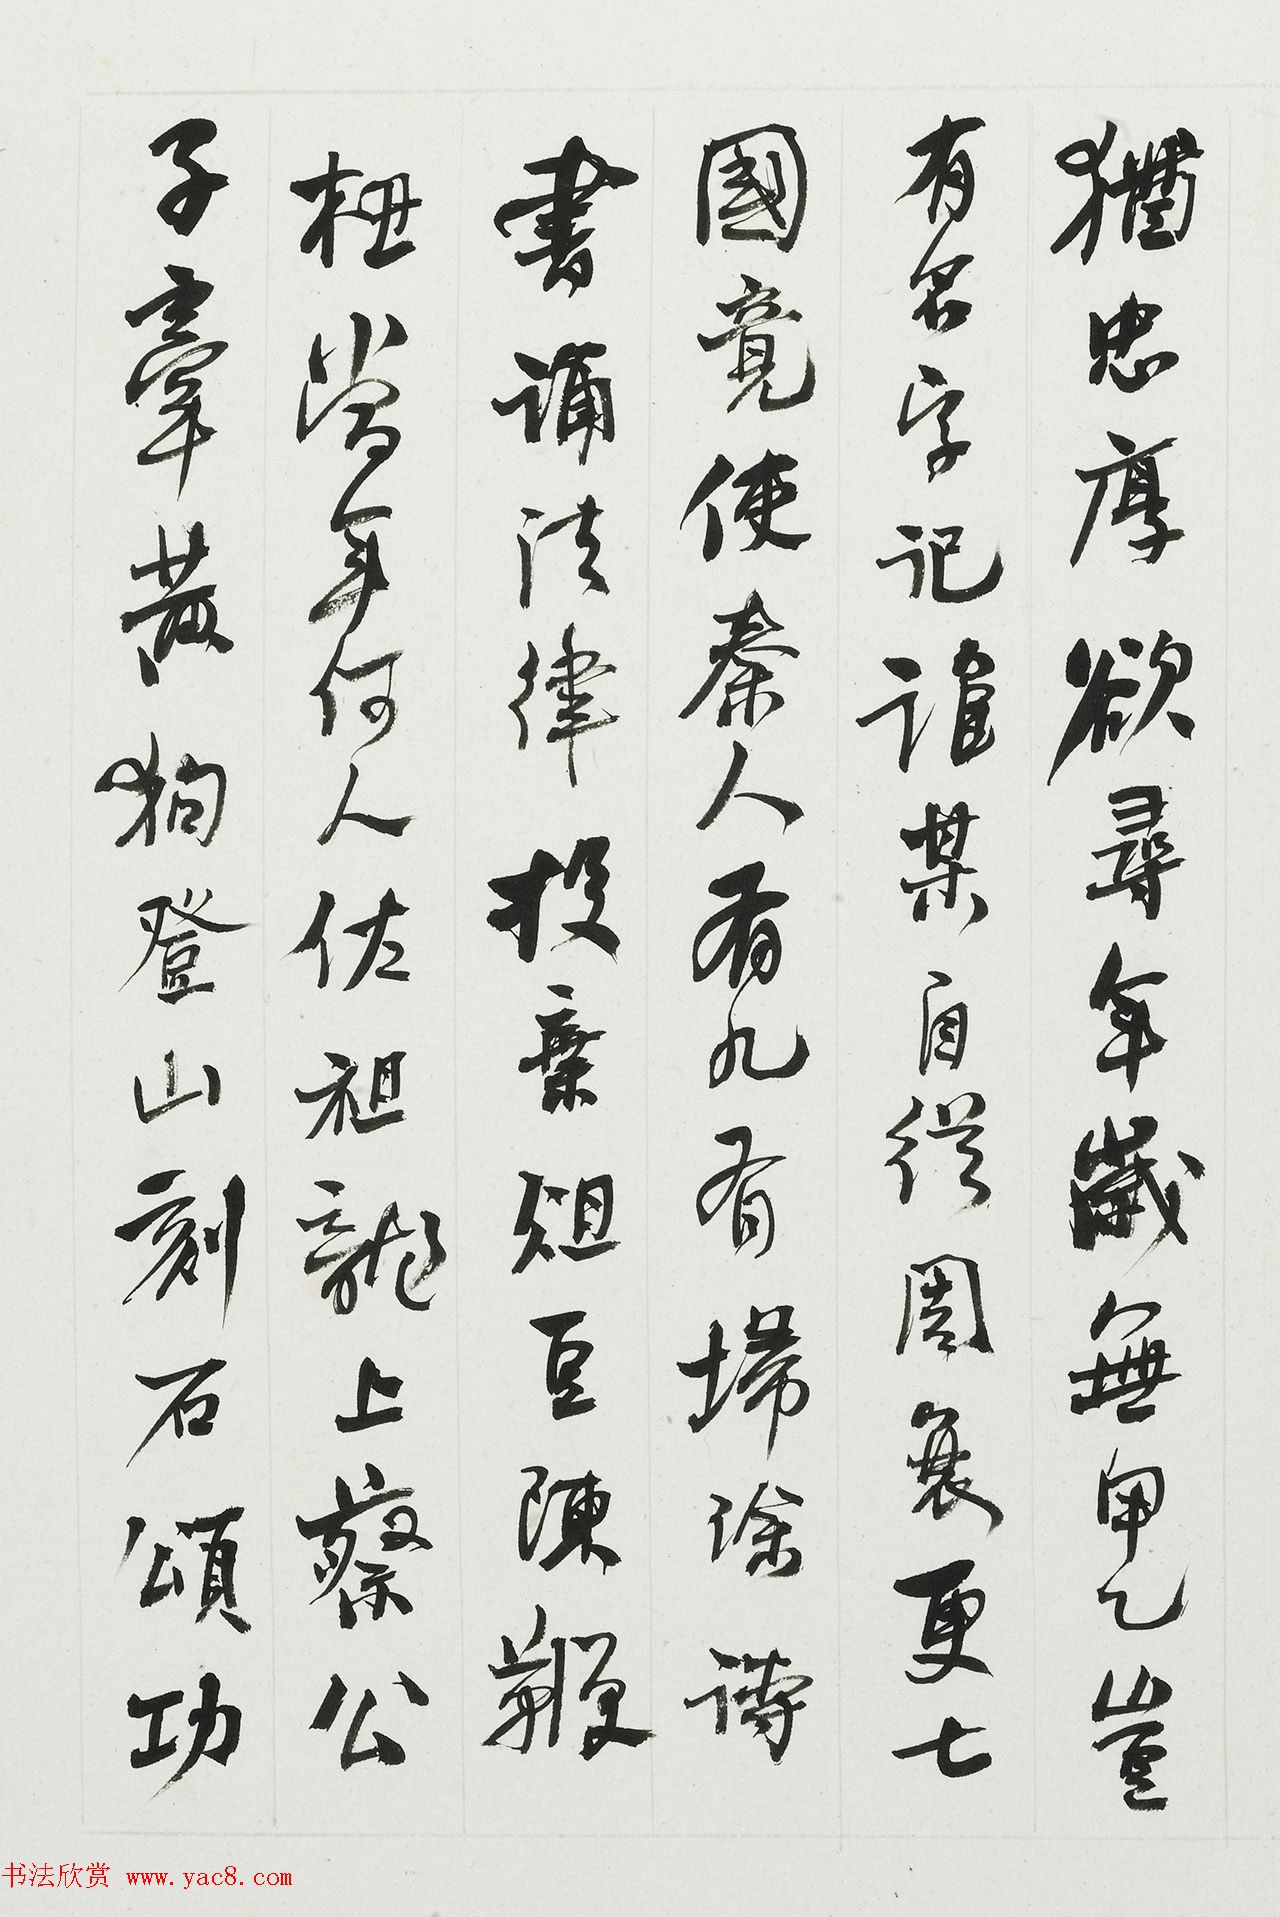 猶忠厚欲尋年歲無甲乙豈
有名字記誰某自從周衰更七
國竟使秦人有九有埽除詩
書誦法律投棄俎豆陳鞭
杻當年何人佐祖龍上蔡公
子牽黃狗登山刻石頌功
书法欣赏 www.yac8.com